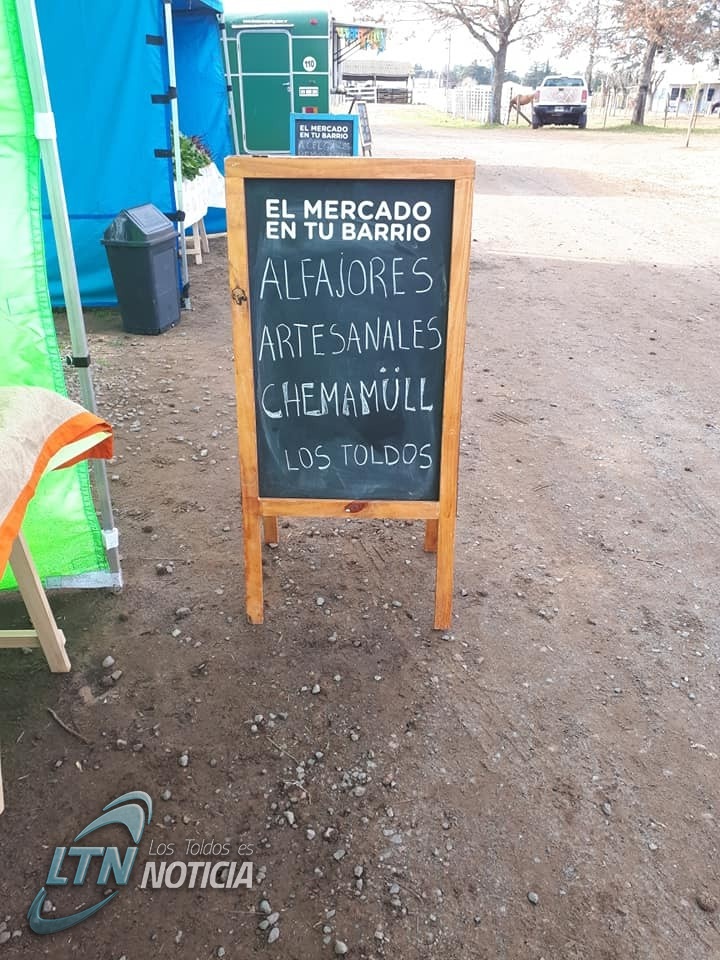 110
EL MERCADO
EN TU BARRIO
EL MERCADO
EN TU BARRIO
ALFAJORES
ARTESANALES
CHEMAMÜLL
LOS TOLDOS
LTN
Los Toldos es
NOTICIA